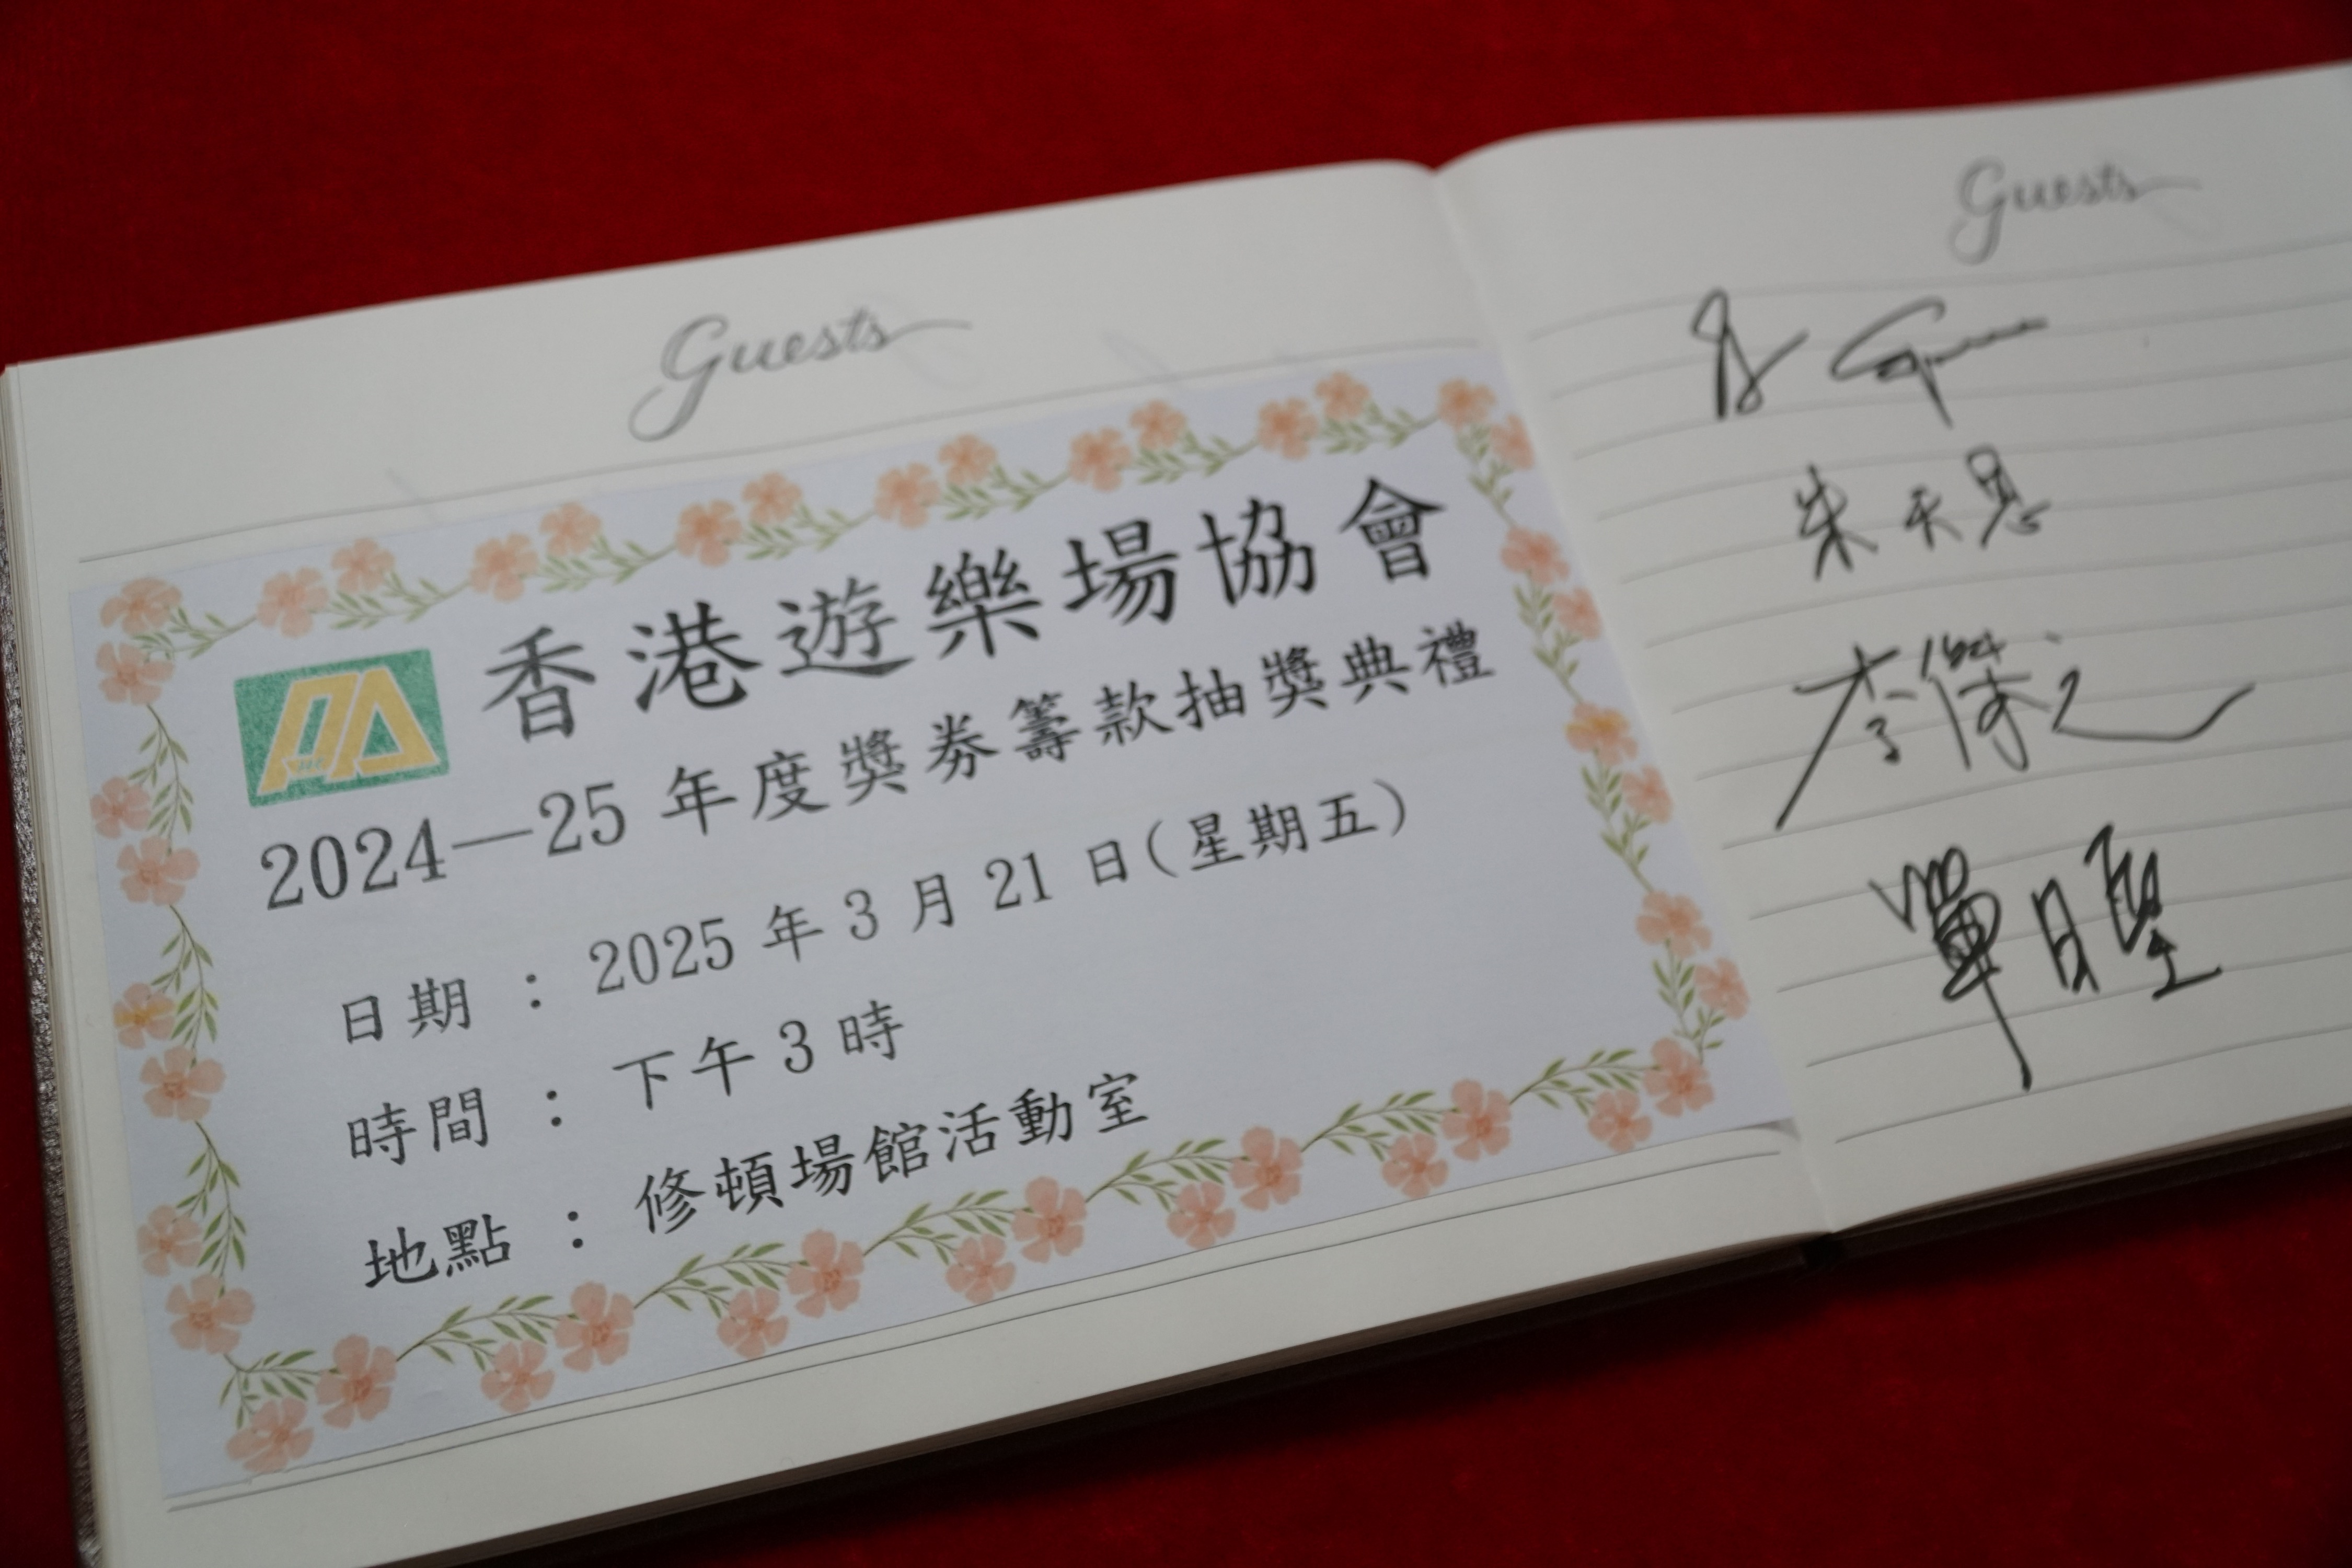 Guests
香港遊樂場協會
2024—25 年度獎券籌款抽獎典禮
日期 : 2025 年 3 月 21 日(星期五)
時間 : 下午 3 時
地點 : 修頓場館活動室
Guests
朱天恩
李傑之
單日堅